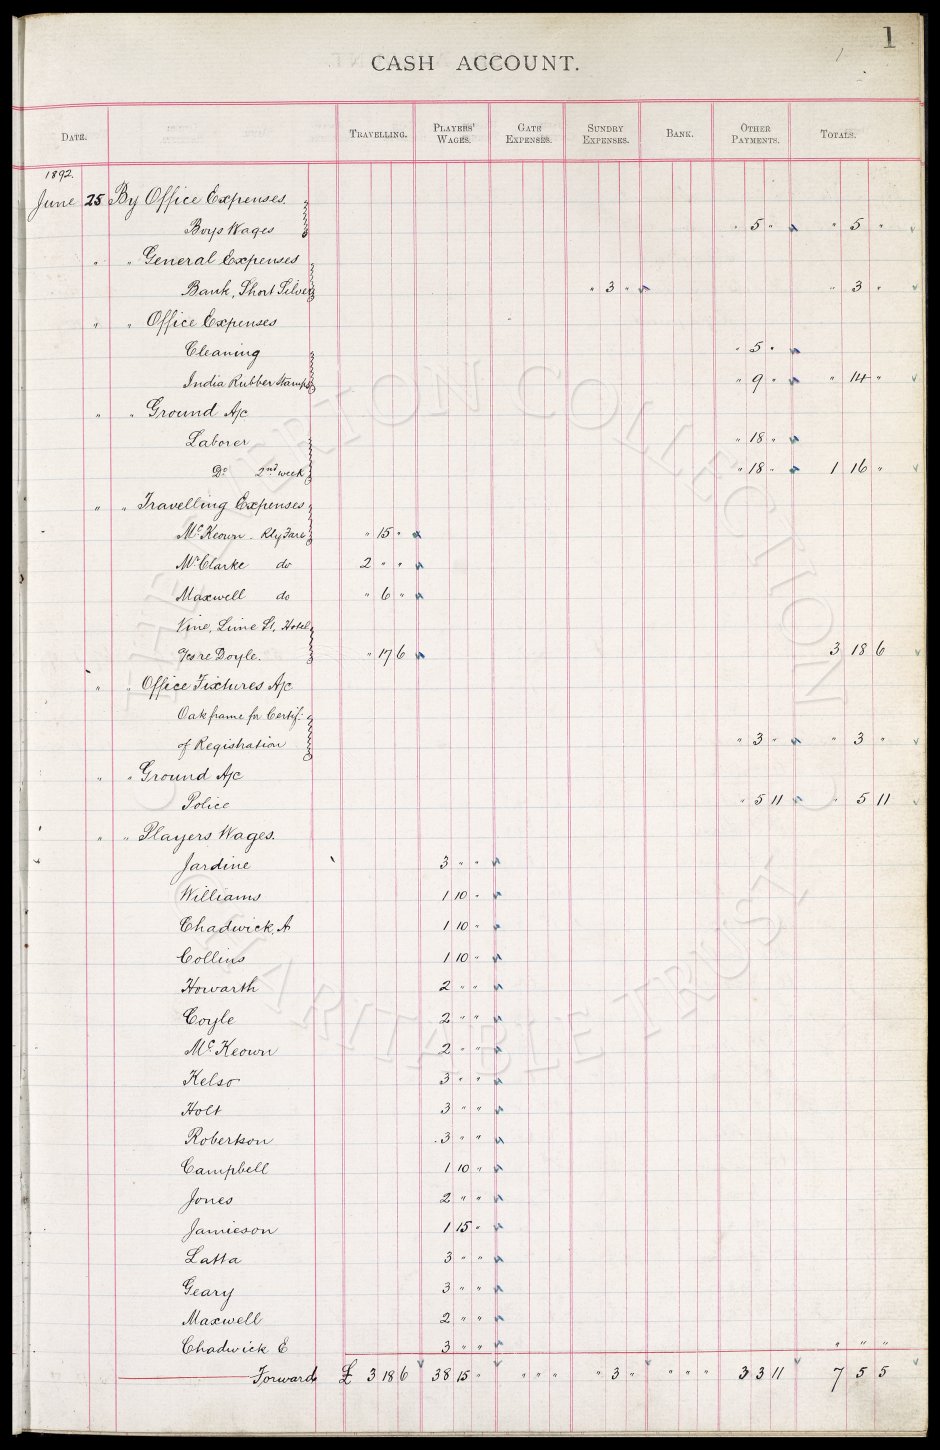 1
CASH ACCOUNT.
DATE. TRAVELLING. PLAYERS' WAGES. GATE EXPENSES. SUNDRY EXPENSES. BANK. OTHER PAYMENTS. TOTALS.
1892.
June 25 By Office Expenses.
Boys Wages " 5 " " 5 "
" " General Expenses
Bank, Short Silver " 3 " " 3 "
" " Office Expenses
Cleaning " 5 "
India Rubber Stamps " 9 " " 14 "
" " Ground A/c
Laborer " 18 "
Do 2nd week " 18 " 1 16 "
" " Travelling Expenses
McKeown . Rly Fare " 15 "
Mr Clarke do 2 " "
Maxwell do " 6 "
Vine, Lime St. Hotel
a/c re Doyle. " 17 6 3 18 6
" " Office Fixtures A/c
Oak frame for Certif:
of Registration " 3 " " 3 "
" " Ground A/c
Police " 5 11 " 5 11
" " Players Wages.
Jardine 3 " "
Williams 1 10 "
Chadwick, A 1 10 "
Collins 1 10 "
Howarth 2 " "
Coyle 2 " "
McKeown 2 " "
Kelso 3 " "
Holt 3 " "
Robertson 3 " "
Campbell 1 10 "
Jones 2 " "
Jamieson 1 15 "
Latta 3 " "
Geary 3 " "
Maxwell 2 " "
Chadwick E 3 " " " " "
Forward £ 3 18 6 38 15 " " " " " 3 " " " " 3 3 11 7 5 5
THE EVERTON COLLECTION
CHARITABLE TRUST